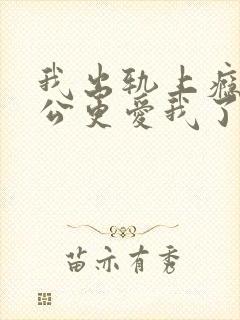 我出轨上瘾
公更爱我了
苗亦有秀